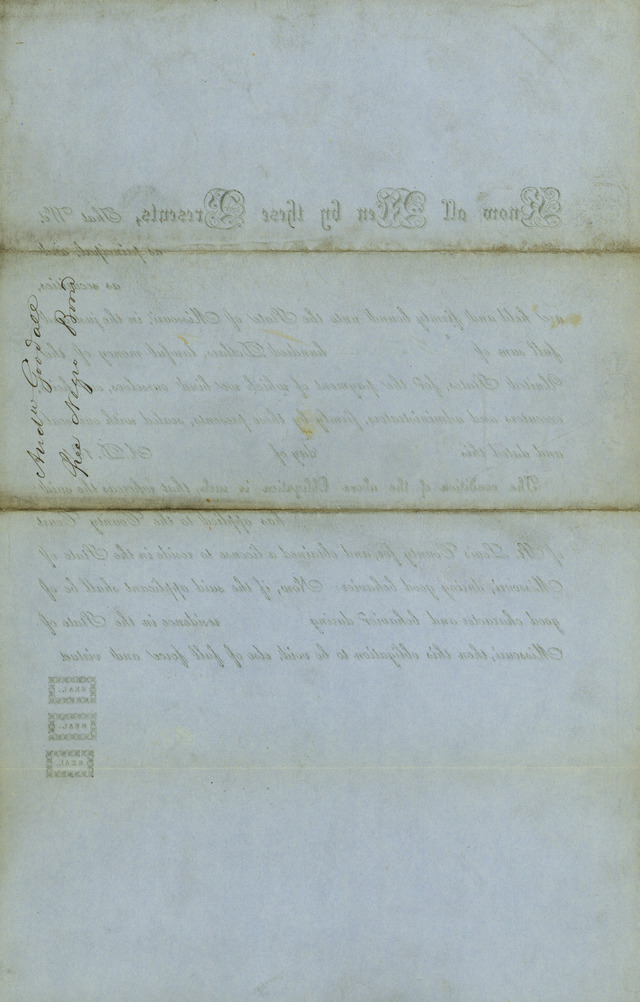 Andw Goodall
Free Negro Bond
Know all Men by these Presents, That We
as principal, and
as securities,
are held and firmly bound unto the State of Missouri, in the just and
full sum of hundred Dollars, lawful money of the
United States, for the payment of which we bind ourselves, our heirs,
executors and administrators, firmly by these presents, sealed with our seals,
and dated this day of A.D. 1
The condition of the above Obligation is such, that whereas the said
has applied to the County Court
of St. Louis County for, and obtained a license to reside in the State of
Missouri, during good behavior: Now, if the said applicant shall be of
good character and behavior during residence in the State of
Missouri, then this obligation to be void, else of full force and virtue.
SEAL.
SEAL.
SEAL.